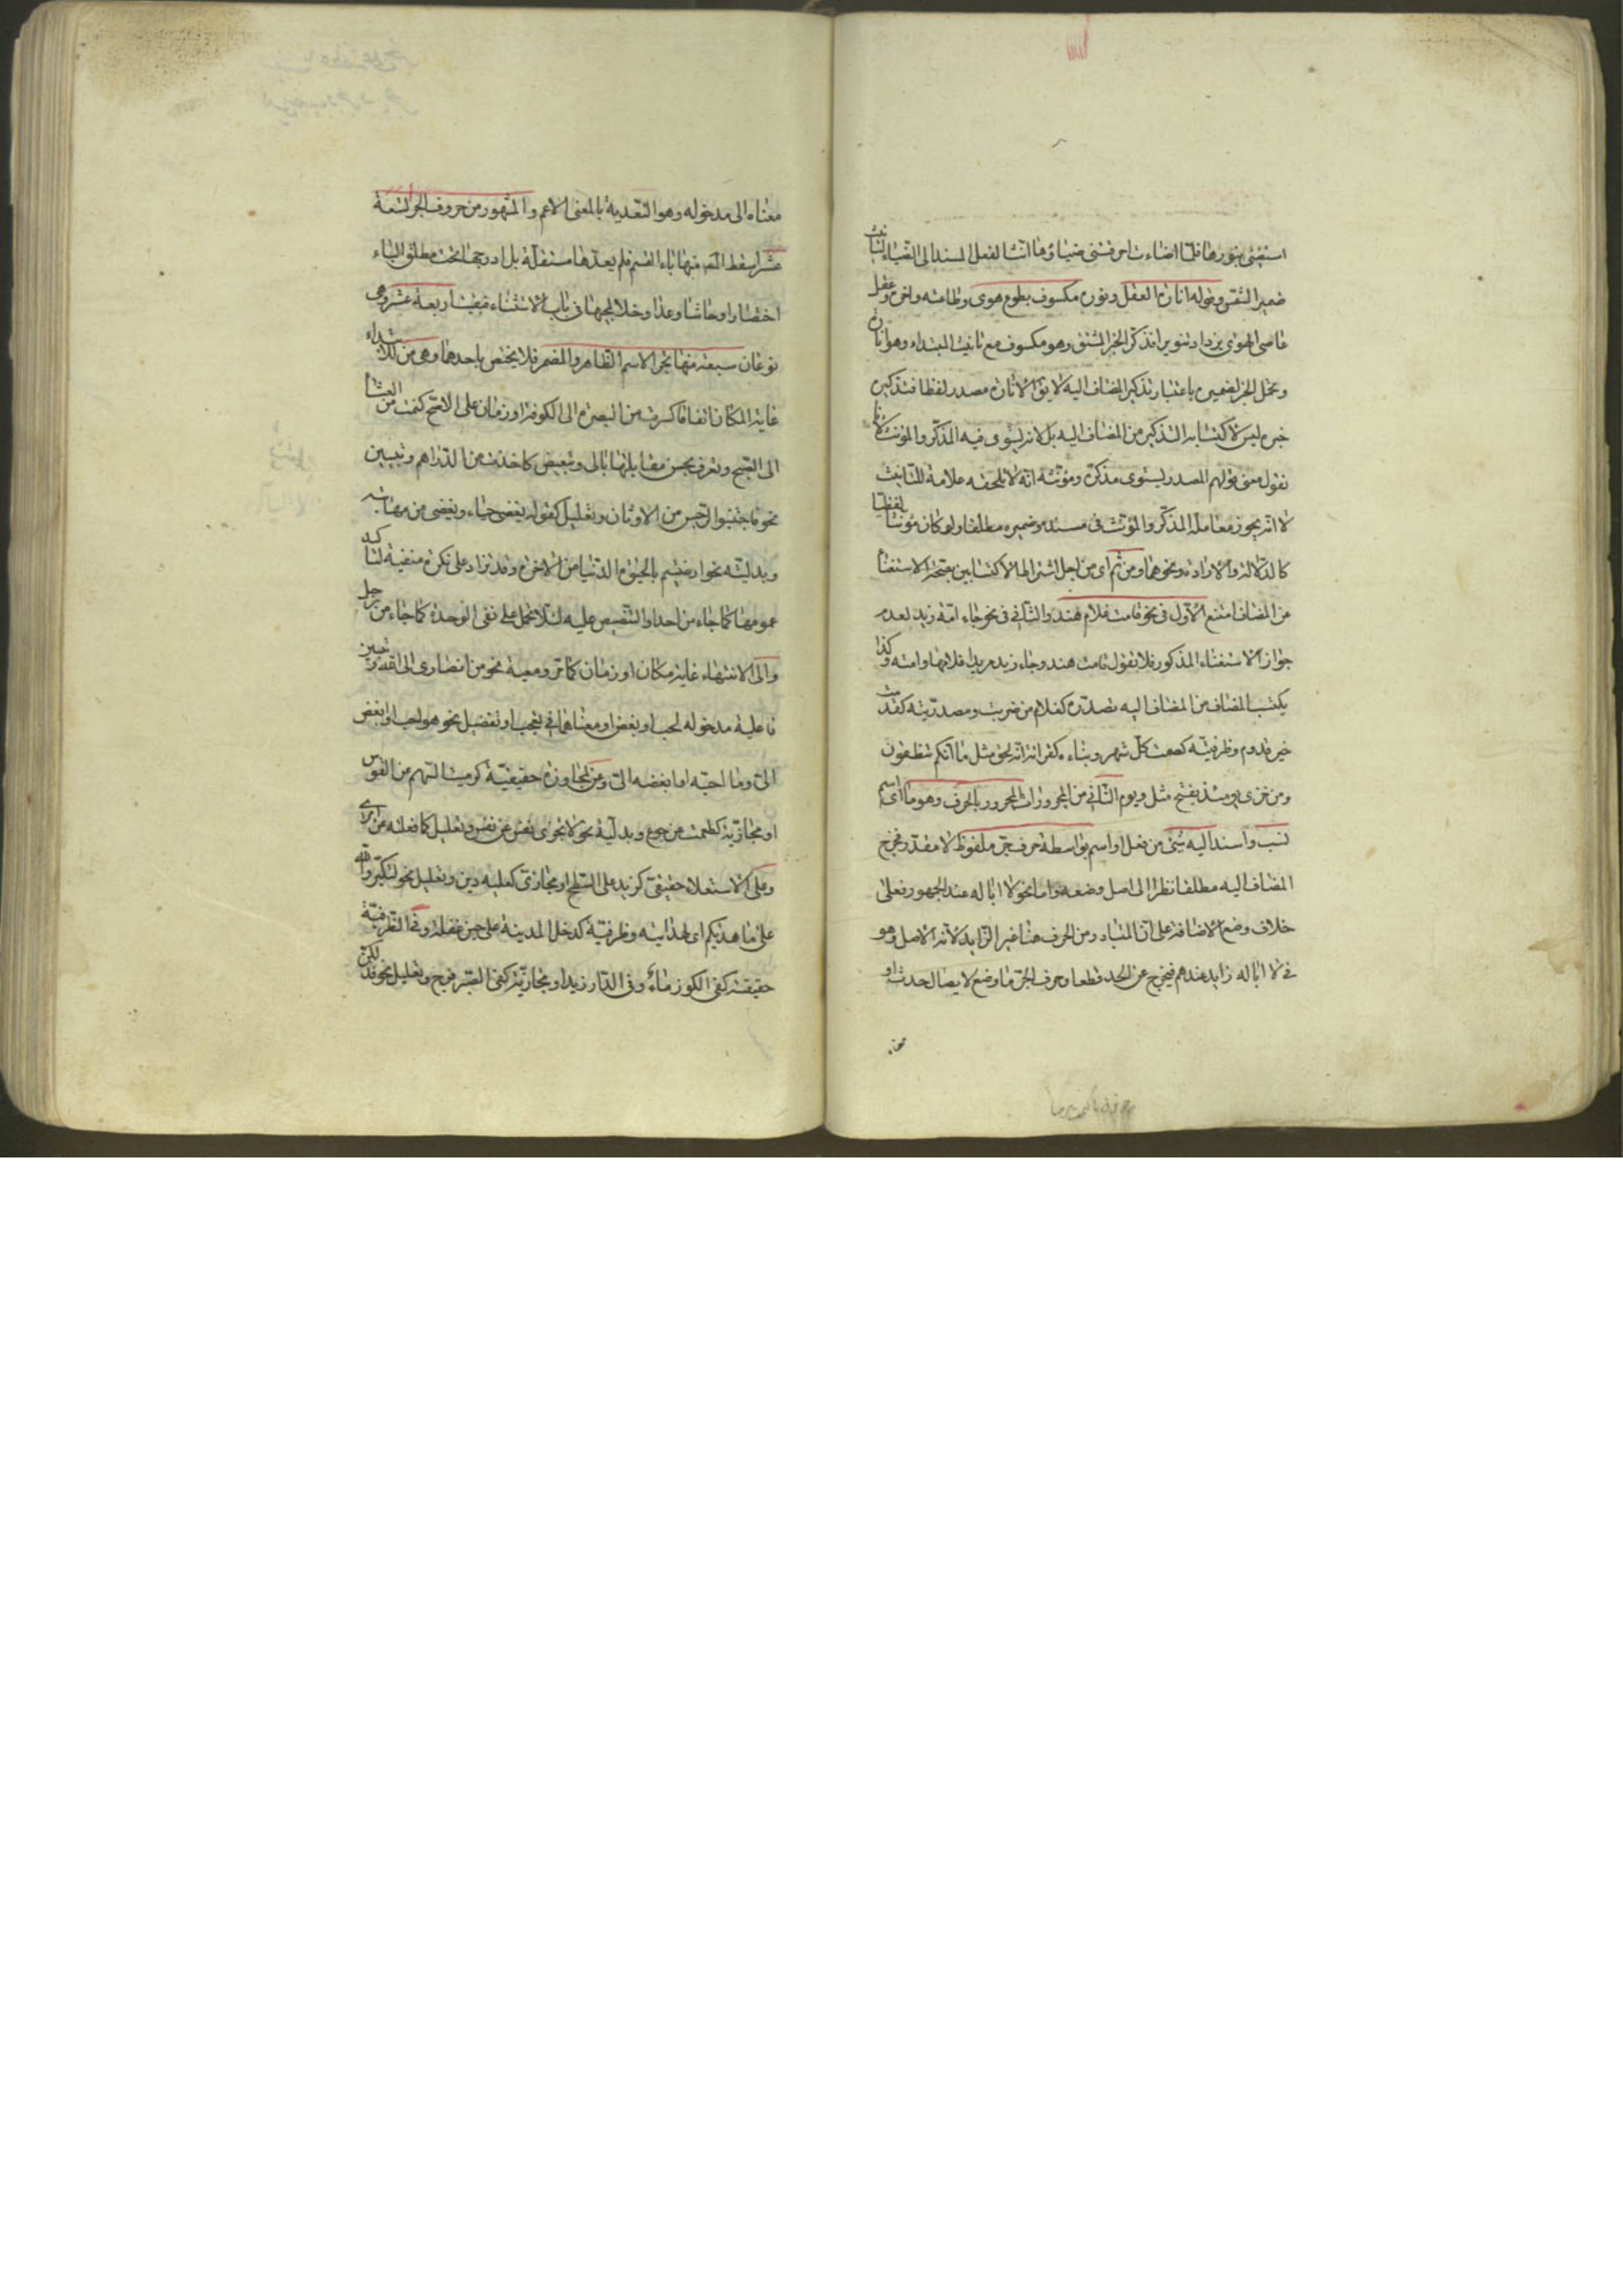 استغنى بنورها فلما اضاءت اخر فثنى ضياؤها انث الفعل المسند الى الضياء لتانيث
ضمير الشمس وقوله انارة العقل ونوره مكسوف بطوع هوى وطاعته واخره وعقل
عاصى الهوى يزداد تنويرا فذكر الخبر المشتق وهو مكسوف مع تانيث المبتداء وهو انارة
وتحمل الخبر لضميره باعتبار تذكير المضاف اليه لا يق الانارة مصدر لفظا فتذكير
خبره ليس لاكتسابه التذكير من المضاف اليه بل لانه يستوى فيه المذكر والمؤنث لانا
نقول معنى قولهم المصدر يستوى مذكره ومؤنثه انه لا يلحقه علامة للتانيث
لا انه يجوز معاملة المذكر والمؤنث فى مسنده وضميره مطلقا ولو كان مؤنثا لفظيا
كالدلالة والارادة ونحوهما ومن ثم اى من اجل اشتراط الاكتسابين بصحة الاستغناء
من المضاف امتنع الاول فى نحو قامت غلام هند والثانى فى نحو جاء امة زيد لعدم
جواز الاستغناء المذكور فلا تقول قامت هند وجاء زيد مريدا غلامها وامته وكذا
يكتسب المضاف من المضاف اليه تصدره كغلام من ضربت ومصدريته كقدمت
خير قدوم وظرفيته كصمت كل شهر وبناءه كقرائة انه لحق مثل ما انكم تنطقون
ومن خزى يومئذ بفتح مثل ويوم الثانى من المجرورات المجرور بالحرف وهو ما اى اسم
نسب واسند اليه شئ من فعل او اسم بواسطة حرف جر ملفوظ لا مقدر فخرج
المضاف اليه مطلقا نظرا الى اصل وضعه واما نحو لا ابا له عند الجمهور فعلى
خلاف وضع الاضافة على ان المتبادر من الحرف هنا غير الزايد لانه الاصل وهو
فى لا ابا له زايد عندهم فيخرج عن الحد قطعا وحرف الجر ما وضع لايصال حدث او
معناه
معناه الى مدخوله وهو التعدية بالمعنى الاعم والمشهور من حروف الجر اربعة
عشر اسقط المص منها باء القسم فلم يعدها مستقلة بل ادرجها تحت مطلق الباء
اختصارا وحاشا وعدا وخلا لمجيئها فى باب الاستثناء فبقيت اربعة عشر وهى
نوعان سبعة منها تجر الاسم الظاهر والمضمر فلا يختص باحدهما وهى من للابتداء
غاية المكان اتفاقا كسرت من البصرة الى الكوفة او زمان على الاصح كنمت من العشاء
الى الصبح وتعرف بحسن مقابلتها بالى وتبعيض كاخذت من الدراهم وتبيين
نحو فاجتنبوا الرجس من الاوثان وتعليل كقوله يغضى حياء ويغضى من مهابته
وبدليته نحو ارضيتم بالحيوة الدنيا من الاخرة وقد تزاد على نكرة منفية لتاكيد
عمومها كما جاء من احد او التنصيص عليه لئلا يحمل على نفى الوحدة كما جاء من رجل
والى لانتهاء غاية مكان او زمان كما مر ومعية نحو من انصارى الى الله وتبيين
فاعلية مدخوله لحب او بغض او معناهما فى تعجب او تفضيل نحو هو احب او ابغض
الى وما احبه او ابغضه الى وعن لمجاوزة حقيقية كرميت السهم من القوس
او مجازية كطعمت من جوع وبدلية نحو لا تجزى نفس عن نفس وتعليل كما فعلته عن امرى
وعلى لاستعلاء حقيقى كزيد على السطح او مجازى كعليه دين وتعليل نحو لتكبروا الله
على ما هديكم اى لهدايته وظرفية كدخل المدينة على حين غفلة وفى لظرفية
حقيقة كفى الكوز ماء وفى الدار زيد او مجازية كفى الصبر فرج وتعليل نحو فذلكن